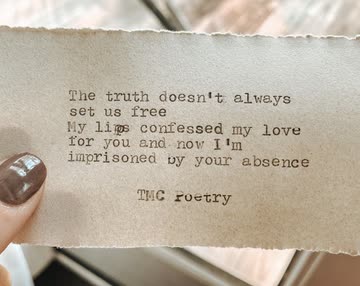 The truth doesn't always
set us free
My lips confessed my love
for you and now I'm
imprisoned by your absence
TMC Poetry